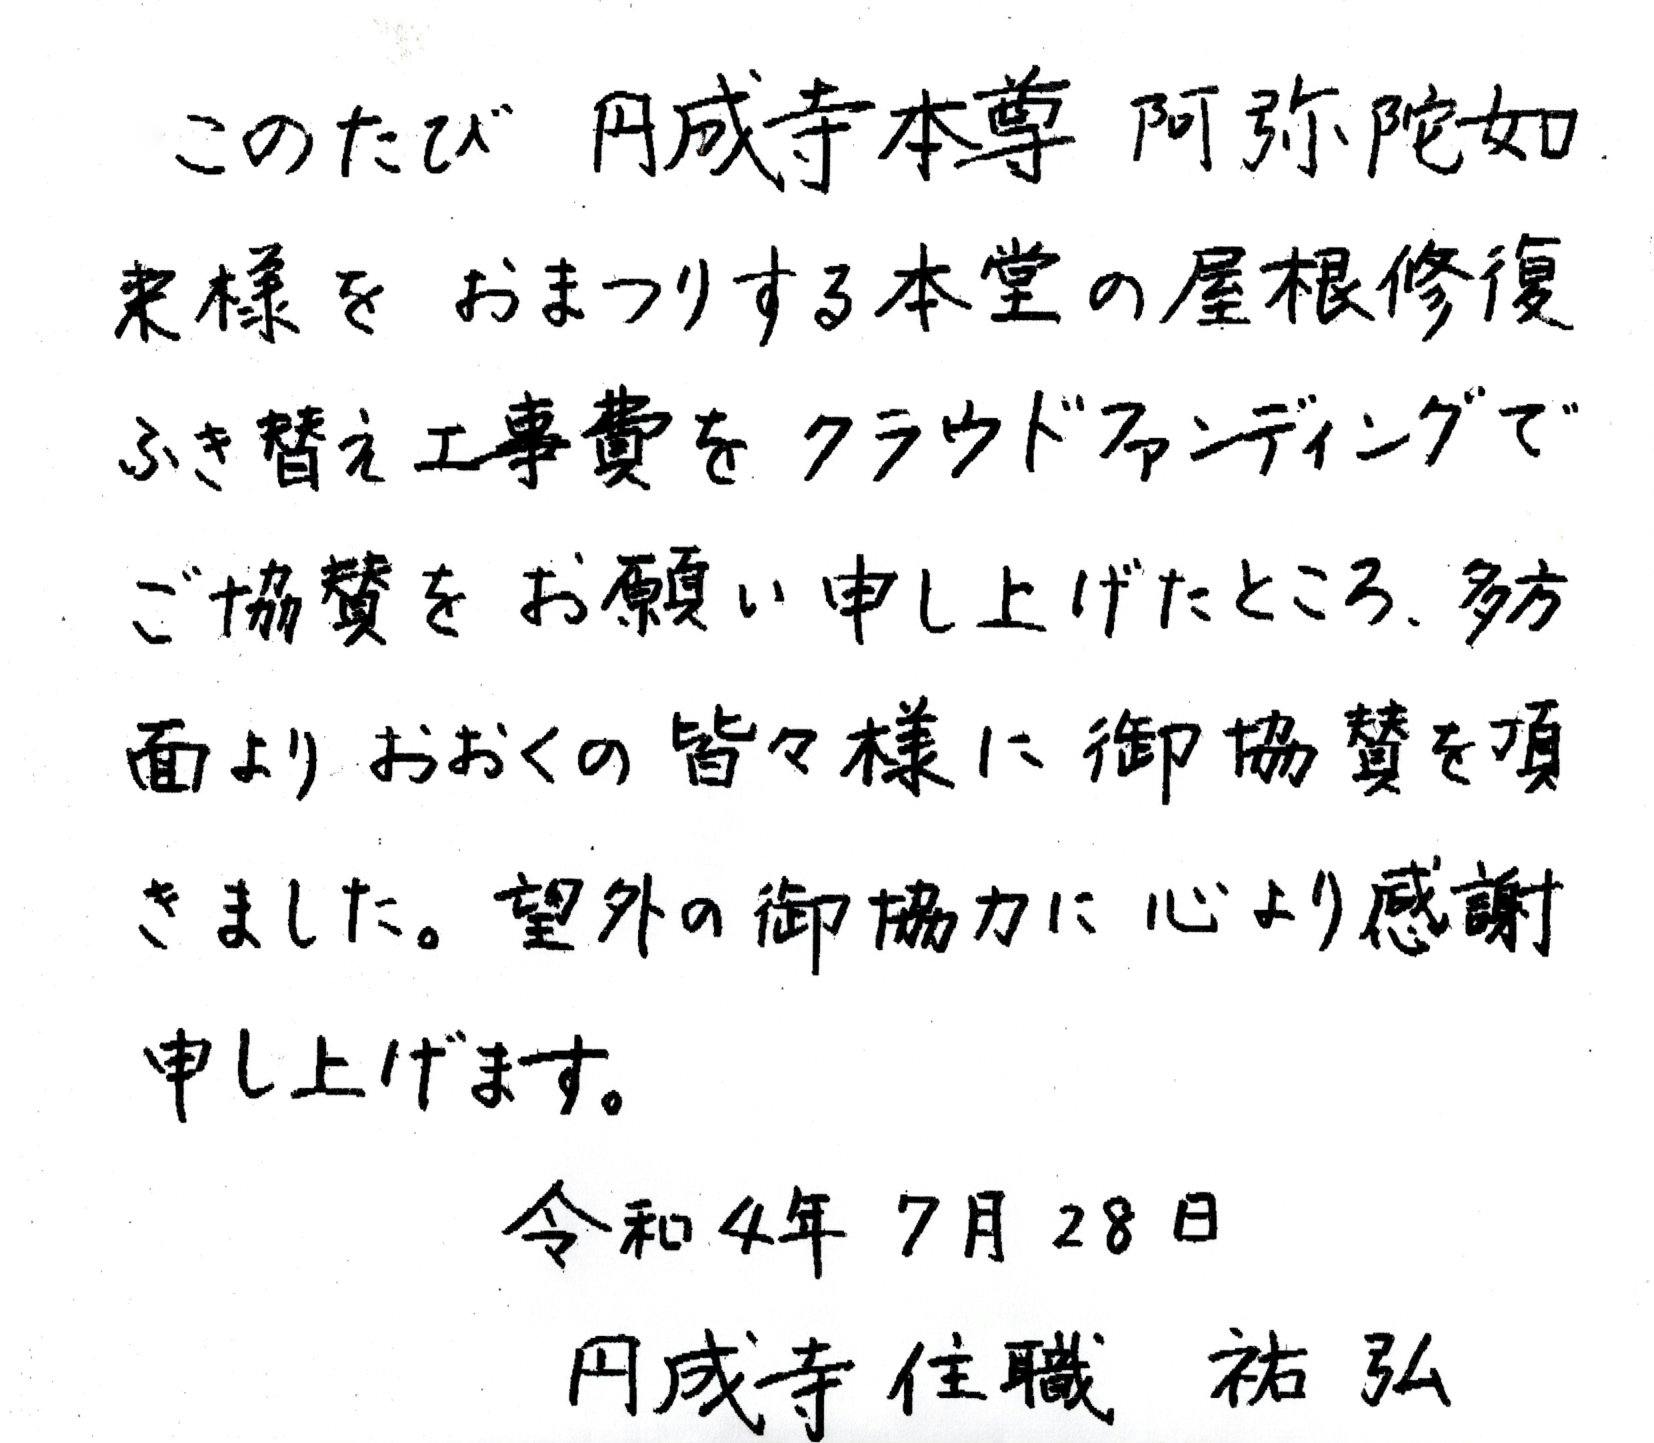 このたび 円成寺本尊 阿弥陀如
来様を おまつりする本堂の屋根修復
ふき替え工事費をクラウドファンディングで
ご協賛をお願い申し上げたところ、多方
面よりおおくの皆々様に御協賛を頂
きました。望外の御協力に心より感謝
申し上げます。
令和4年 7月28日
円成寺住職 祐弘